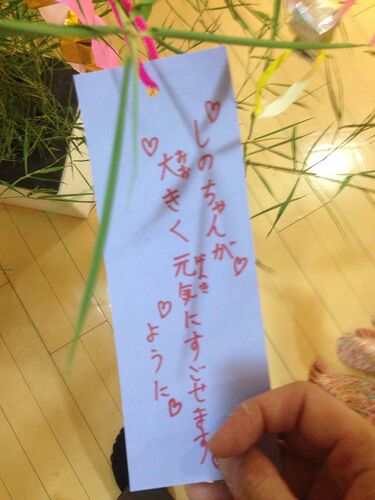 ♡しのちゃんが♡
♡大きく元気にすごせます
おお
げんき
♡ように♡